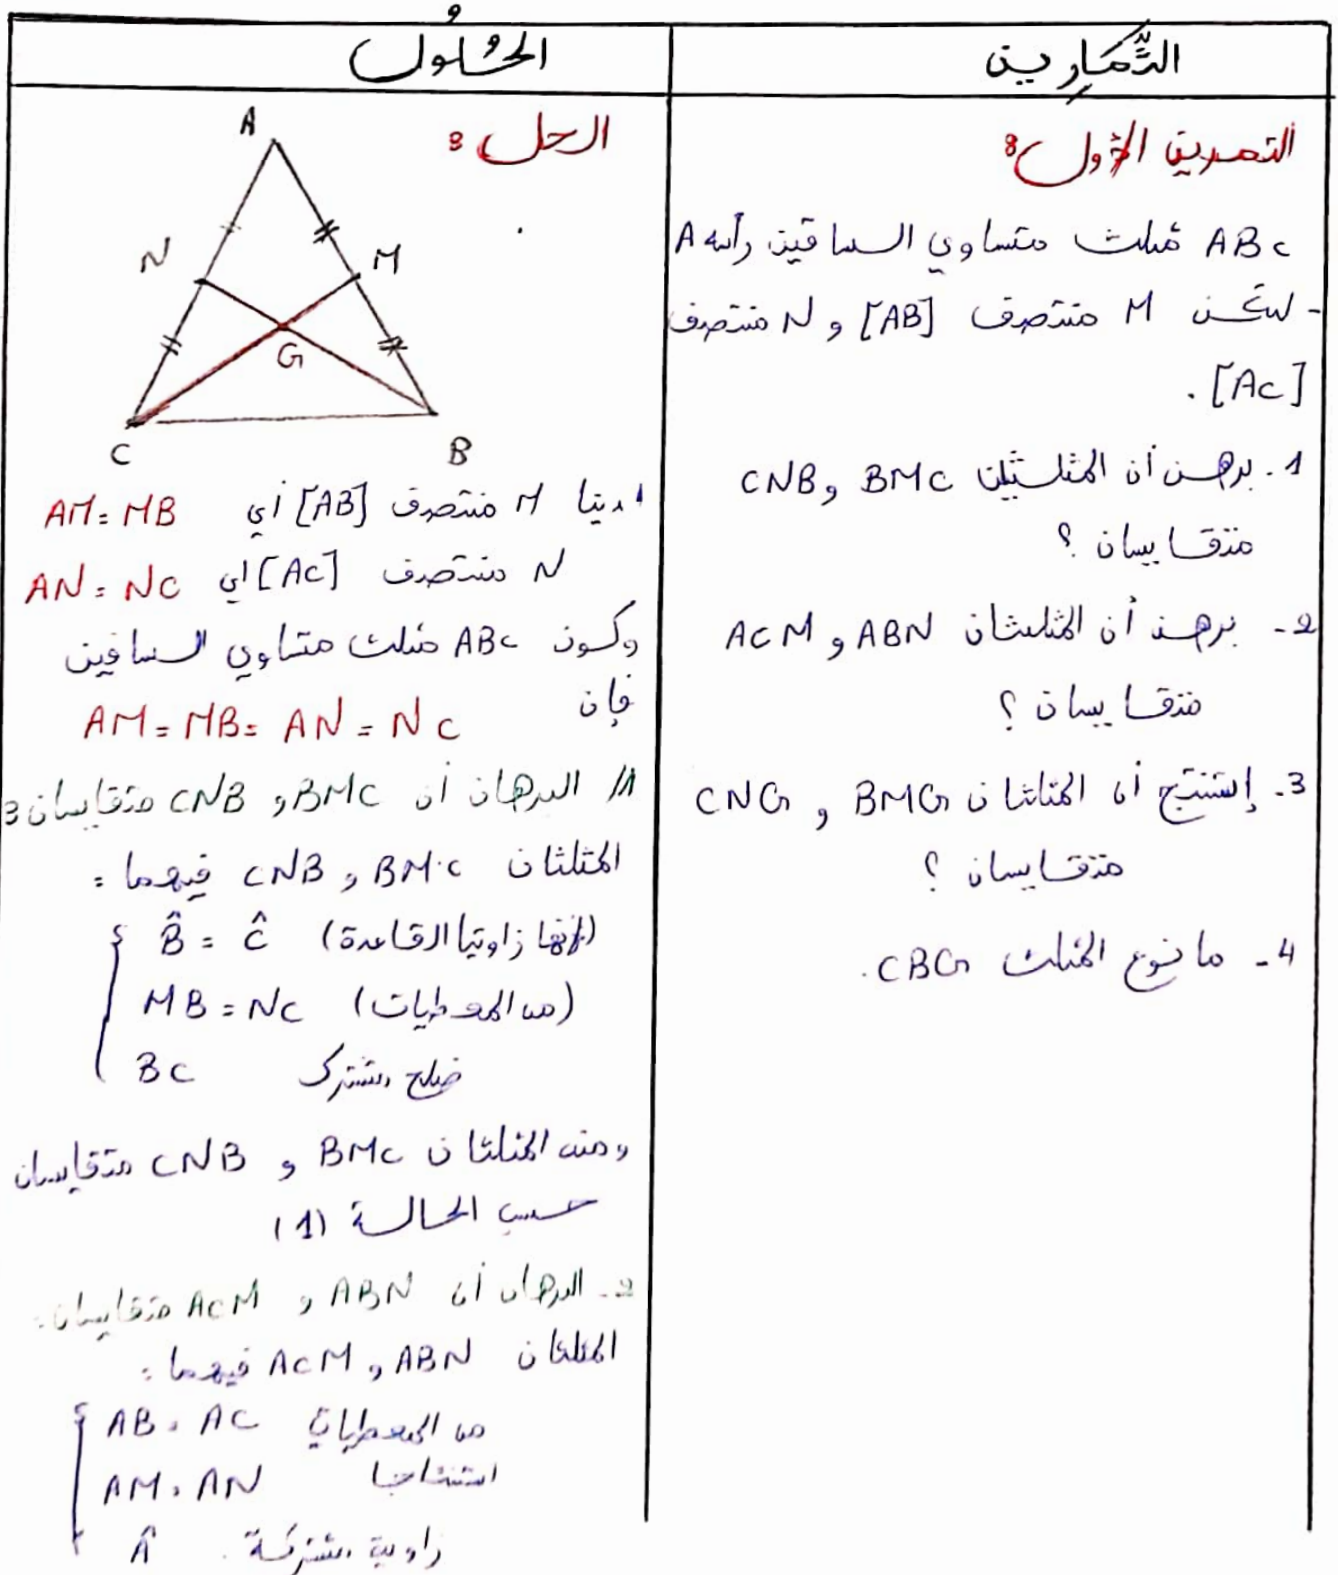 التَّمَارِين
الحُلُولُ
التمرين الأول :
ABC مثلث متساوي الساقين رأسه A
- لتكن M منتصف [AB] و N منتصف
[AC] .
1. برهن أن المثلثين BMC و CNB
متقايسان ؟
2- برهن أن المثلثان ABN و ACM
متقايسان ؟
3. إستنتج أن المثلثان BMG و CNG
متقايسان ؟
4- ما نوع المثلث CBG.
الحل :
A
N
M
G
C
B
لدينا M منتصف [AB] أي AM = MB
N منتصف [AC] أي AN = NC
وكون ABC مثلث متساوي الساقين
فإن
AM = MB = AN = NC
1/ البرهان أن BMC و CNB متقايسان :
المثلثان BMC و CNB فيهما :
B̂ = Ĉ (لأنها زاويتا القاعدة)
MB = NC (من المعطيات)
BC ضلع مشترك
ومنه المثلثان BMC و CNB متقايسان
حسب الحالة (1)
2- البرهان أن ABN و ACM متقايسان :
المثلثان ABN و ACM فيهما :
AB = AC من المعطيات
AM = AN استنتاجا
Â زاوية مشتركة .